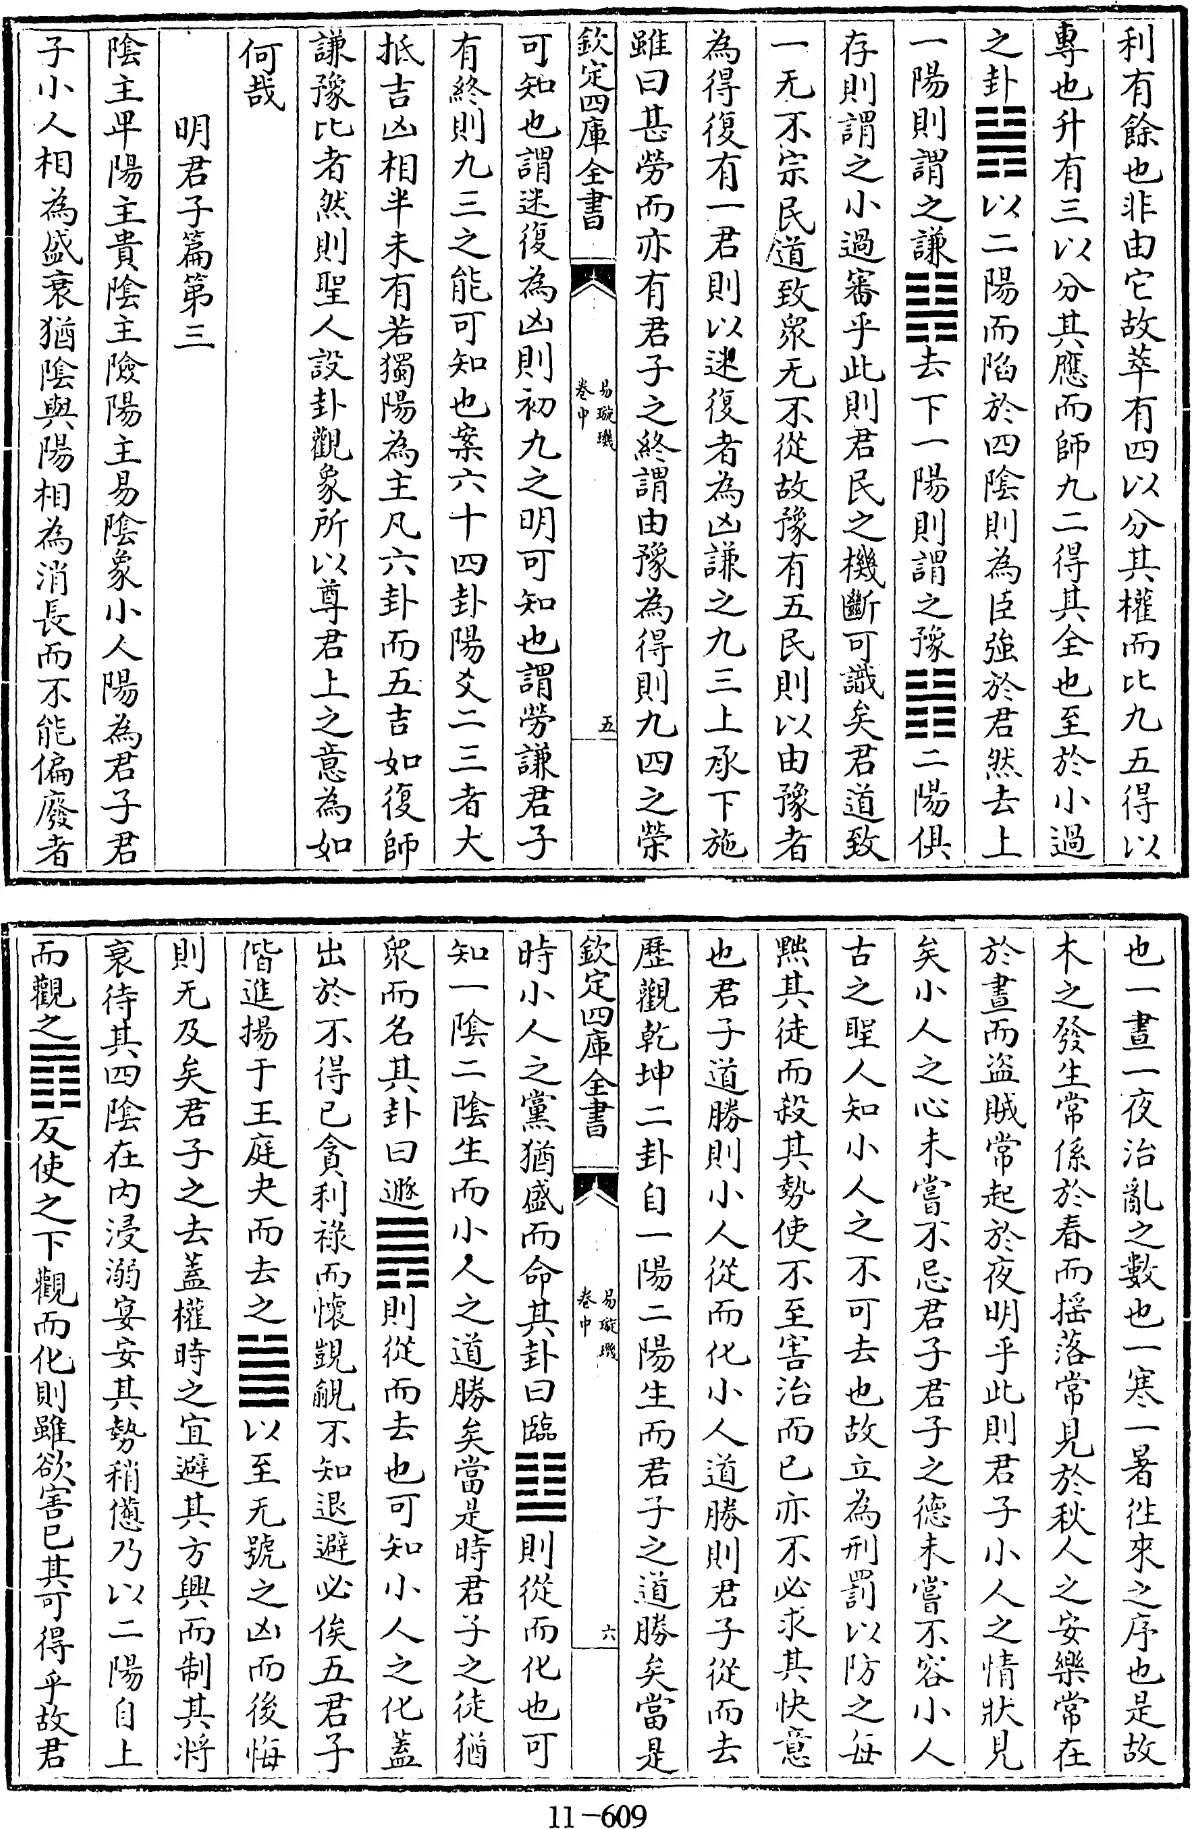 利有餘也非由它故萃有四以分其權而比九五得以
專也升有三以分其應而師九二得其全也至於小過
之卦䷽以二陽而陷於四陰則為臣強於君然去上
一陽則謂之謙䷎去下一陽則謂之豫䷏二陽俱
存則謂之小過審乎此則君民之機斷可識矣君道致
一无不宗民道致衆无不從故豫有五民則以由豫者
為得復有一君則以迷復者為凶謙之九三上承下施
雖曰甚勞而亦有君子之終謂由豫為得則九四之榮
欽定四庫全書
易璇璣
卷中
五
可知也謂迷復為凶則初九之明可知也謂勞謙君子
有終則九三之能可知也案六十四卦陽爻二三者大
抵吉凶相半未有若獨陽為主凡六卦而五吉如復師
謙豫比者然則聖人設卦觀象所以尊君上之意為如
何哉
明君子篇第三
陰主卑陽主貴陰主險陽主易陰象小人陽為君子君
子小人相為盛衰猶陰與陽相為消長而不能偏廢者
也一晝一夜治亂之數也一寒一暑徃來之序也是故
木之發生常係於春而揺落常見於秋人之安樂常在
於晝而盜賊常起於夜明乎此則君子小人之情狀見
矣小人之心未嘗不忌君子君子之德未嘗不容小人
古之聖人知小人之不可去也故立為刑罰以防之每
黙其徒而殺其勢使不至害治而已亦不必求其快意
也君子道勝則小人從而化小人道勝則君子從而去
歷觀乾坤二卦自一陽二陽生而君子之道勝矣當是
欽定四庫全書
易璇璣
卷中
六
時小人之黨猶盛而命其卦曰臨䷒則從而化也可
知一陰二陰生而小人之道勝矣當是時君子之徒猶
衆而名其卦曰遯䷠則從而去也可知小人之化蓋
出於不得已貪利祿而懷覬覦不知退避必俟五君子
偕進揚于王庭夬而去之䷪以至无號之凶而後悔
則无及矣君子之去蓋權時之宜避其方興而制其將
衰待其四陰在内浸溺宴安其勢稍憊乃以二陽自上
而觀之䷓反使之下觀而化則雖欲害已其可得乎故君
11-609